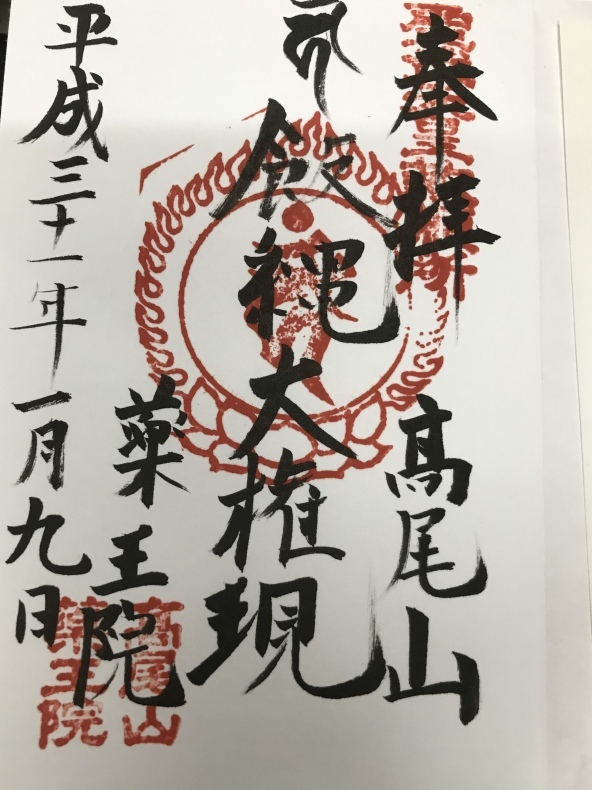 奉拝
高尾山
飯縄大権現
薬王院
平成三十一年一月九日
高尾山
薬王院